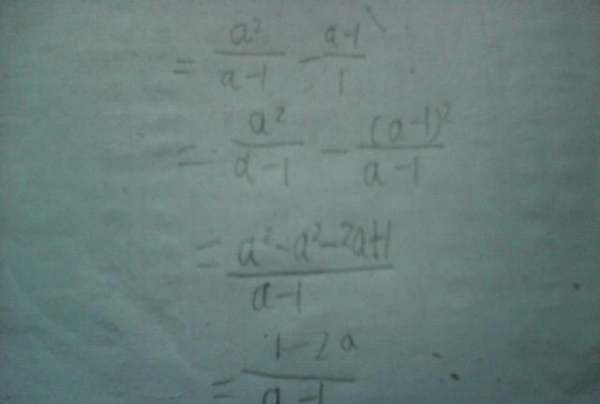 = a²/(a-1) - (a-1)/1
= a²/(a-1) - (a-1)²/(a-1)
= (a²-a²-2a+1)/(a-1)
= (1-2a)/(a-1)